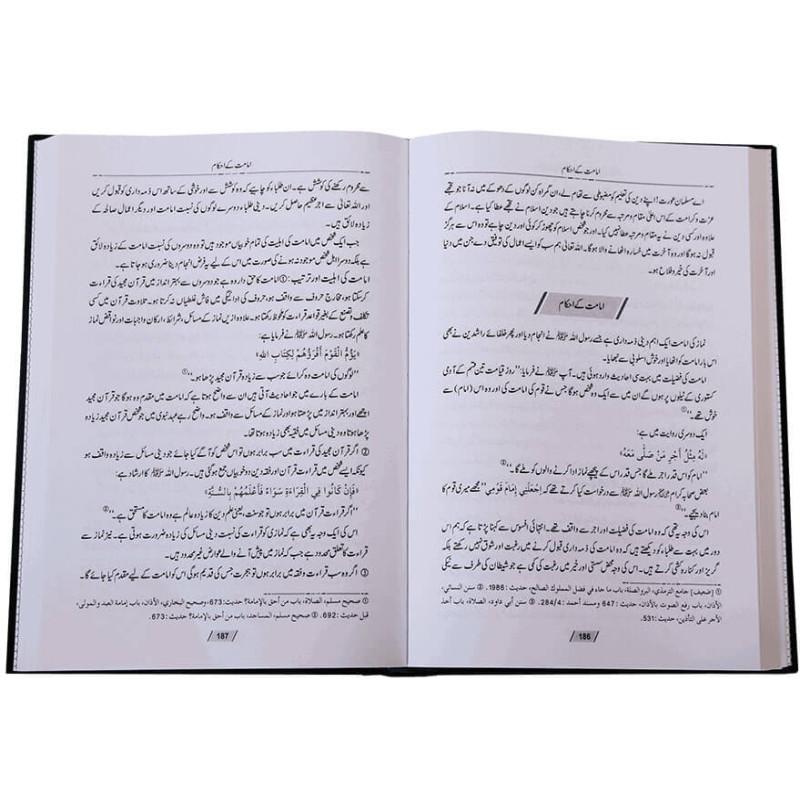 امامت کے احکام
اے مسلمان عورت! اپنے دین کی تعلیم کو مضبوطی سے تھام لے، ان گمراہ کن لوگوں کے دھوکے میں نہ آنا جو تجھے
عزت و کرامت کے اس اعلیٰ مقام و مرتبہ سے محروم کرنا چاہتے ہیں جو دین اسلام نے تجھے عطا کیا ہے۔ اسلام کے
علاوہ اور کسی دین نے یہ مقام و مرتبہ عطا نہیں کیا۔ اور جو شخص اسلام کو چھوڑ کر کوئی اور دین چاہے تو اس سے ہرگز
قبول نہ ہوگا اور وہ آخرت میں خسارہ اٹھانے والا ہوگا۔ اللہ تعالیٰ ہم سب کو ایسے اعمال کی توفیق دے جن میں دنیا
اور آخرت کی خیر و فلاح ہو۔
امامت کے احکام
نماز کی امامت ایک اہم دینی ذمہ داری ہے جسے رسول اللہ ﷺ نے انجام دیا اور پھر خلفائے راشدین نے بھی
اس بار امامت کو اٹھایا اور خوش اسلوبی سے نبھایا۔
امامت کی فضیلت میں بہت سی احادیث وارد ہوئی ہیں۔ آپ ﷺ نے فرمایا: ''روز قیامت تین قسم کے آدمی
کستوری کے ٹیلوں پر ہوں گے ان میں سے ایک وہ شخص ہوگا جس نے قوم کی امامت کی اور وہ اس (امام) سے
خوش تھے۔''①
ایک دوسری روایت میں ہے:
«لَهُ مِثْلُ أَجْرِ مَنْ صَلَّى مَعَهُ»
''امام کو اس قدر اجر ملے گا جس قدر اس کے پیچھے نماز ادا کرنے والوں کو ملے گا۔''②
بعض صحابہ کرام رسول اللہ ﷺ سے درخواست کیا کرتے تھے کہ اِجْعَلْنِي إِمَامَ قَوْمِي ''مجھے میری قوم کا
امام بنا دیجیے۔''③
اس کی وجہ یہ تھی کہ وہ امامت کی فضیلت اور اجر سے واقف تھے۔ انتہائی افسوس سے کہنا پڑتا ہے کہ ہم اس
دور میں بہت سے طلباء کو دیکھتے ہیں کہ وہ امامت کی ذمہ داری قبول کرنے میں رغبت اور شوق نہیں رکھتے بلکہ
گریز اور کنارہ کشی کرتے ہیں۔ اس کی وجہ محض سستی اور خیر میں کمی رغبت ہے جو شیطان کی طرف سے نیکی
① [ضعیف] جامع الترمذي، البر والصلة، باب ما جاء في فضل المملوك الصالح، حديث: 1986. ② سنن النسائي،
الأذان، باب رفع الصوت بالأذان، حديث: 647 ومسند أحمد: 284/4. ③ سنن أبي داود، الصلاة، باب أخذ
الأجر على التأذين، حديث: 531.
186
امامت کے احکام
سے محروم رکھنے کی کوشش ہے۔ ان طلباء کو چاہیے کہ وہ کوشش سے اور خوشی کے ساتھ اس ذمہ داری کو قبول کریں
اور اللہ تعالیٰ سے اجر عظیم حاصل کریں۔ دینی طلباء دوسرے لوگوں کی نسبت امامت اور دیگر اعمال صالحہ کے
زیادہ لائق ہیں۔
جب ایک شخص میں امامت کی اہلیت کی تمام خوبیاں موجود ہیں تو وہ دوسروں کی نسبت امامت کے زیادہ لائق
ہے بلکہ دوسرا اہل شخص موجود نہ ہونے کی صورت میں اس کے لیے یہ فرض انجام دینا ضروری ہو جاتا ہے۔
امامت کی اہلیت اور ترتیب: ① امامت کا حق دار وہ ہے جو دوسروں سے بہتر انداز میں قرآن مجید کی قراءت
کر سکتا ہو، مخارج حروف سے واقف ہو، حروف کی ادائیگی میں فاش غلطیاں نہ کرتا ہو۔ تلاوت قرآن میں کسی
تکلف و تصنع کے بغیر قواعد قراءت کو ملحوظ رکھتا ہو۔ علاوہ ازیں نماز کے مسائل، شرائط، ارکان و اجبات اور نواقض نماز
کا علم رکھتا ہو۔ رسول اللہ ﷺ نے فرمایا ہے:
«يَؤُمُّ الْقَوْمَ أَقْرَؤُهُمْ لِكِتَابِ اللهِ»
''لوگوں کی امامت وہ کرائے جو سب سے زیادہ قرآن مجید پڑھا ہو۔''①
امامت کے بارے میں جو احادیث آتی ہیں ان سے واضح ہوتا ہے کہ امامت میں مقدم وہ ہوگا جو قرآن مجید
اچھے اور بہتر انداز میں پڑھتا ہو اور نماز کے مسائل سے واقف ہو۔ واضح رہے عہد نبوی میں جو شخص قرآن مجید زیادہ
پڑھا ہوتا وہ دینی مسائل میں فقیہ بھی زیادہ ہوتا تھا۔
② اگر قرآن مجید کی قراءت میں سب برابر ہوں تو اس شخص کو آگے کیا جائے جو دینی مسائل سے زیادہ واقف ہو
کیونکہ ایسے شخص میں قراءت قرآن اور فقہ دین دو خوبیاں جمع ہو گئی ہیں۔ رسول اللہ ﷺ کا ارشاد ہے:
«فَإِنْ كَانُوا فِي الْقِرَاءَةِ سَوَاءً فَأَعْلَمُهُمْ بِالسُّنَّةِ»
''اگر قراءت میں برابر ہوں تو جو سنت، یعنی علم دین کا زیادہ عالم ہے وہ امامت کا مستحق ہے۔''②
اس کی ایک وجہ یہ بھی ہے کہ نمازی کو قراءت کی نسبت دینی مسائل کی زیادہ ضرورت ہوتی ہے۔ نیز نماز سے
قراءت کا تعلق محدود ہے جب کہ نماز میں پیش آنے والے عوارض غیر محدود ہیں۔
③ اگر وہ سب قراءت و فقہ میں برابر ہوں تو ہجرت جس کی قدیم ہوگی اس کو امامت کے لیے مقدم کیا جائے گا۔
① صحيح مسلم، الصلاة، باب من أحق بالإمامة؟ حديث: 673، وصحيح البخاري، الأذان، باب إمامة العبد والمولى،
قبل حديث: 692. ② صحيح مسلم، المساجد، باب من أحق بالإمامة؟ حديث: 673.
187